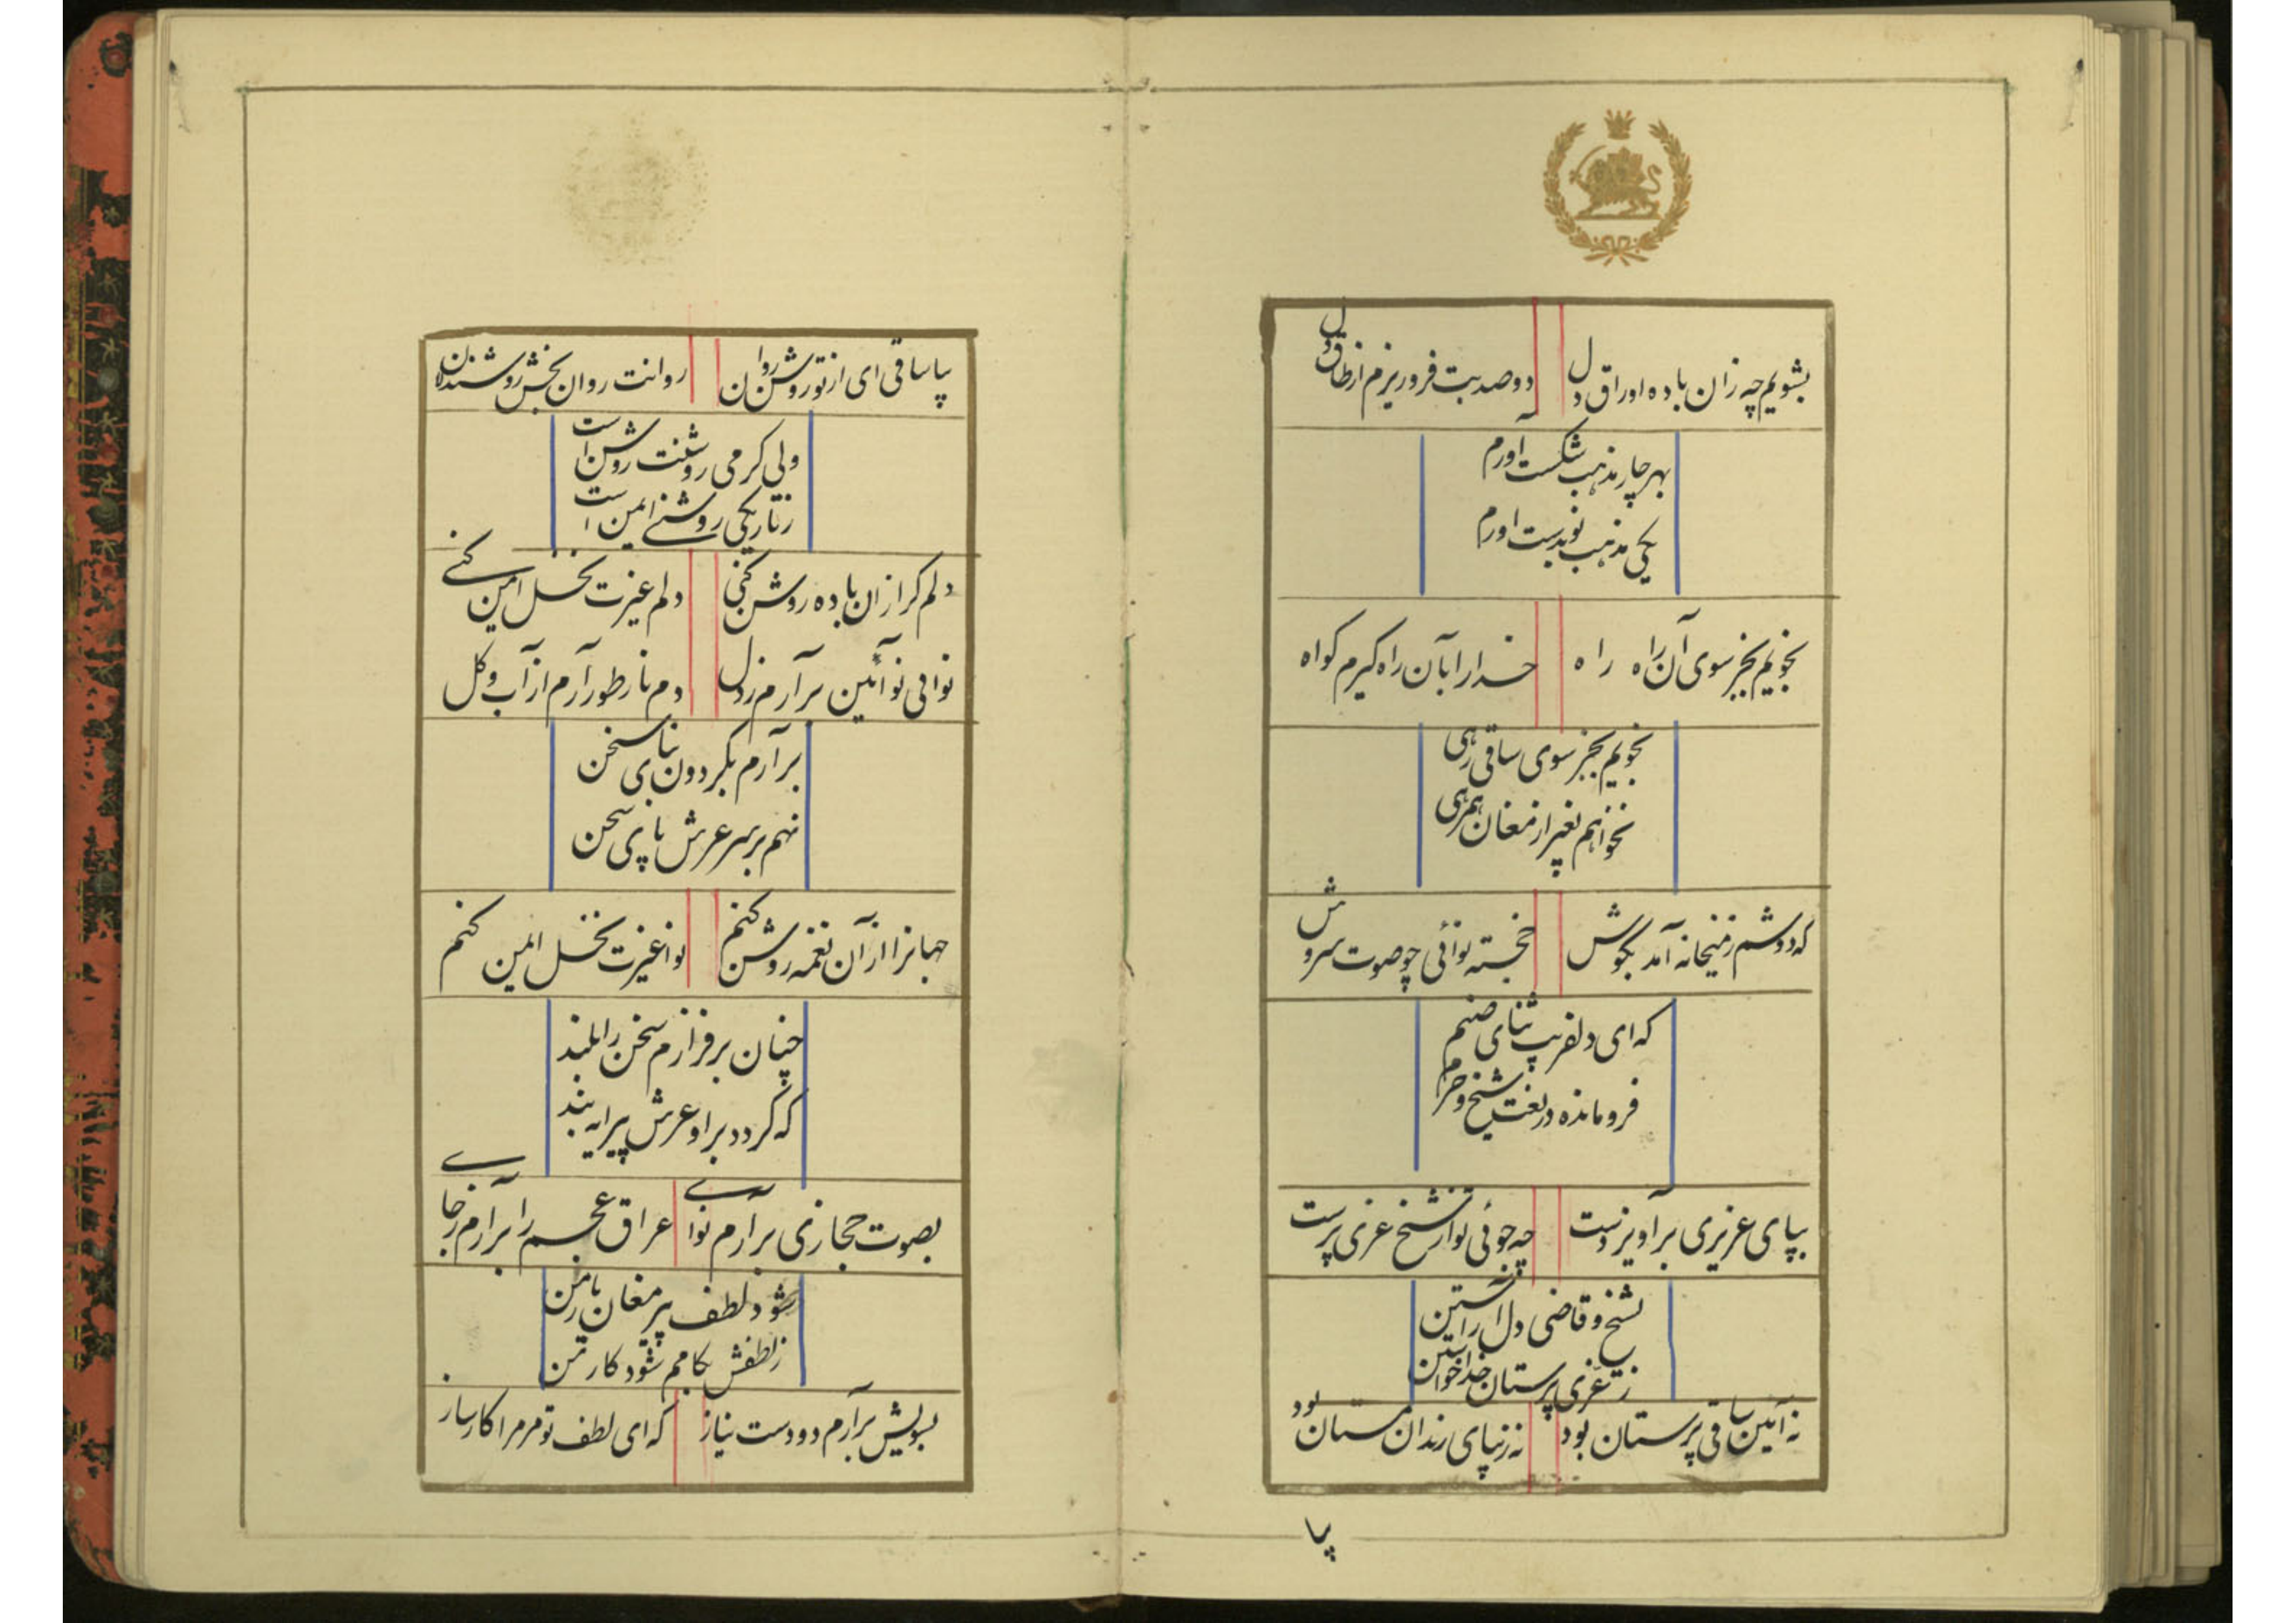 بشویم چه زان باده اوراق دل
دو صد بت فرو ریزم از طاق دل
بهر چار مذهب شکست آورم
یکی مذهب نو بدست اورم
نجویم بجز سوی آن راه راه
خدا را بآن راه گیرم گواه
نجویم بجز سوی ساقی رهی
نخواهم بغیر از مغان همرهی
که دوشم ز میخانه آمد بگوش
خجسته نوائی چو صوت سروش
که ای دلفریب ثنای صنم
فرومانده در لغت شیخ و حرم
بپای عزیزی برآویز دست
چه جوئی تو از شیخ عزی پرست
بشیخ و قاضی دل آراستن
ز عزی پرستان خدا خواستن
نه آئین ساقی پرستان بود
نه زیبای رندان مستان بود
پیا
پیا ساقی ای از تو روشن روان
روانت روان بخش روشندلان
ولی کر می روشنت روشن است
ز تاریکی روشنی ایمن است
دلم کر از آن باده روشن کنی
دلم غیرت نخل ایمن کنی
نوائی نو آئین برآرم ز دل
دم نار طور آرم از آب و گل
برآرم بگردون نبای سخن
نهم بر سر عرش باپی سخن
جهانرا از آن نغمه روشن کنم
نوا غیرت نخل ایمن کنم
چنان برفرازم سخن را بلند
که گردد بر او عرش پیرایه بند
بصوت حجازی برآرم نوای
عراق عجم را برآرم ز جای
شود لطف پیر مغان یار من
ز لطفش بکامم شود کار من
بسویش برآرم دو دست نیاز
که ای لطف تو مر مرا کارساز